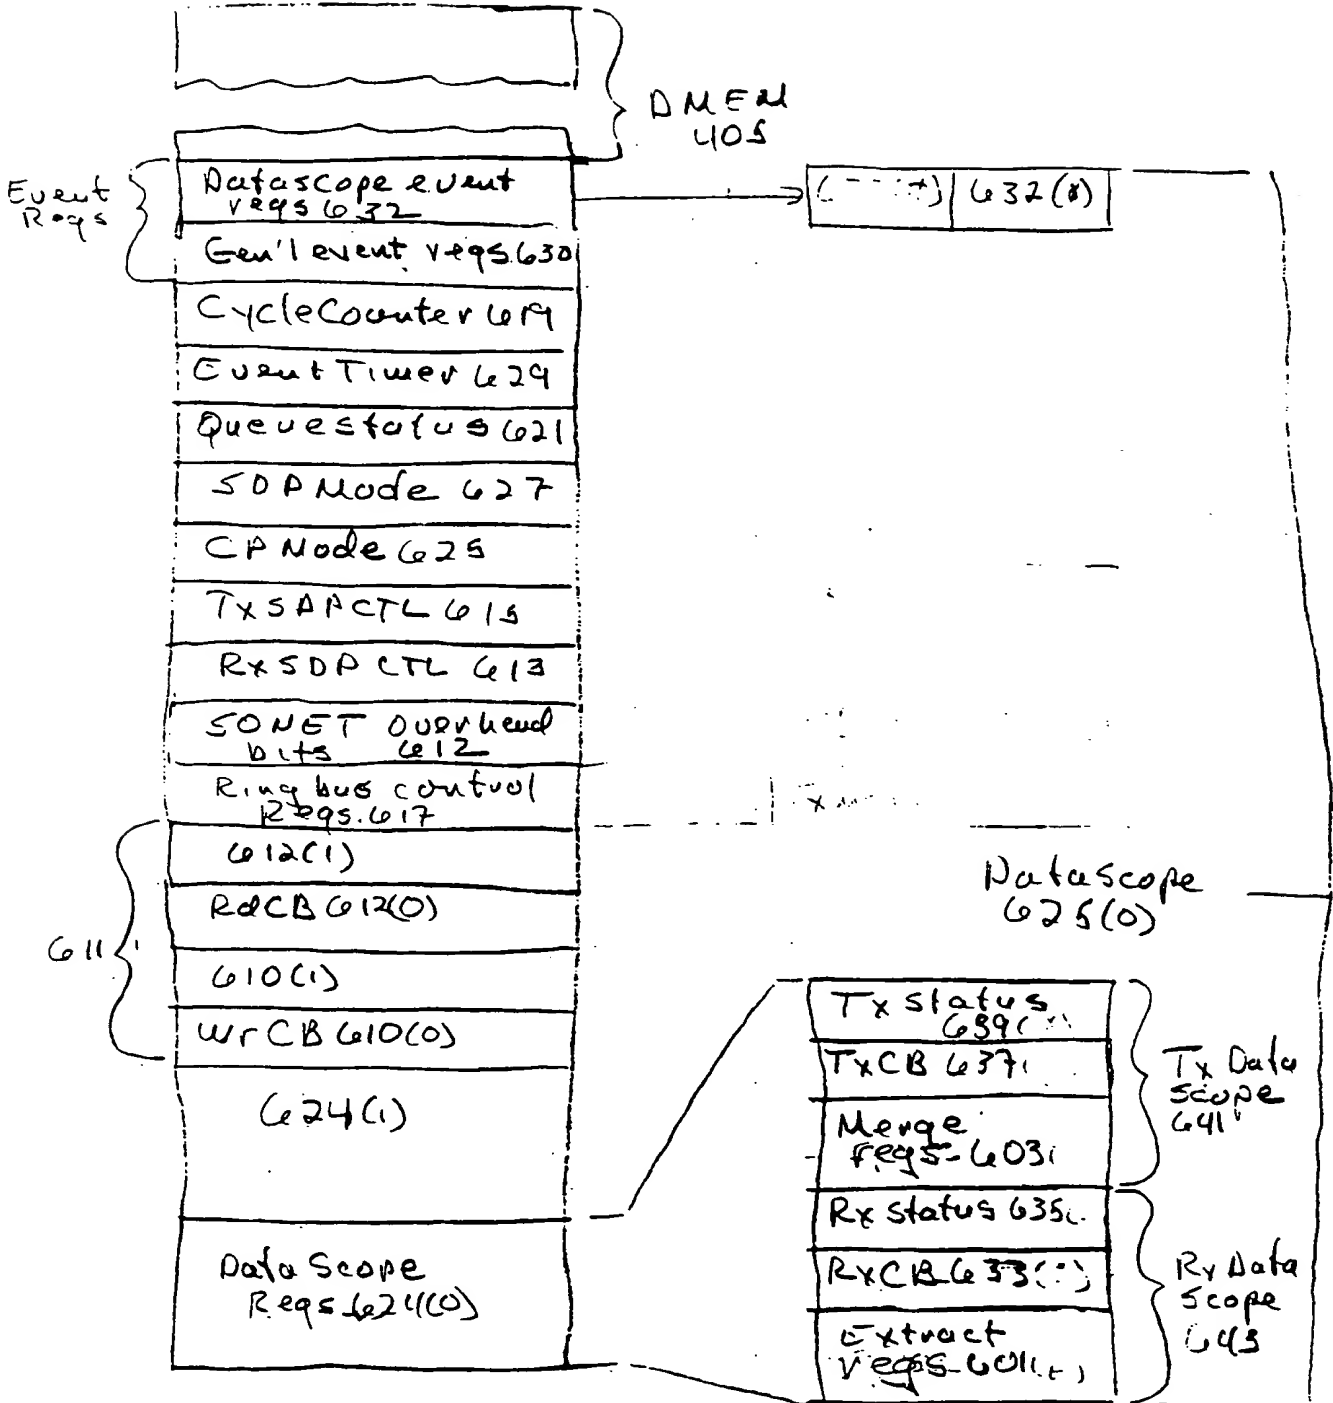 DMEM
405
Event
Regs
Datascope event
regs 632
632(0)
Gen'l event regs. 630
CycleCounter 619
EventTimer 629
Queuestatus 621
SDPMode 627
CPMode 625
TxSDPCTL 615
RxSDPCTL 613
SONET overhead
bits 612
Ring bus control
Regs. 617
611
612(1)
RdCB 612(0)
610(1)
WrCB 610(0)
624(1)
Data Scope
Regs 624(0)
DataScope
625(0)
Tx status
639(
TxCB 637
Merge
regs 603
Rx status 635
RxCB 633( )
Extract
regs 601
Tx Data
scope
641
Rx Data
scope
643